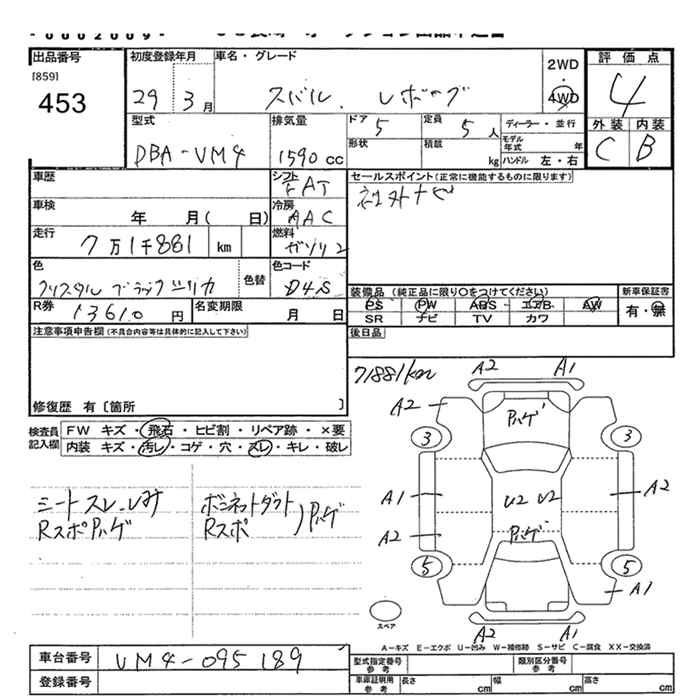 出品番号 初度登録年月 車名・グレード 2WD 評価点
[859]
453 29 3月 スバル レボーグ 4WD 4
型式 排気量 ドア 5 定員 5人 ディーラー・並行 外装 内装
DBA-VM4 1590cc 形状 積載 kg モデル年式 年 C B
ハンドル 左・右
車歴 シフト FAT セールスポイント(正常に機能するものに限ります)
車検 年 月( 日) 冷房 AAC 社外ナビ
走行 7万1千881 km 燃料 ガソリン
色 色替 色コード
クリスタルブラックシリカ D4S 装備品(純正品に限り○をつけてください) 新車保証書
R券 13610円 名変期限 月 日 PS PW ABS エアB AW 有・無
SR ナビ TV カワ
注意事項申告欄(不具合内容等は具体的に記入して下さい) 後日品
修復歴 有〔箇所 〕
71881km
検査員 FW キズ・飛石・ヒビ割・リペア跡・×要
記入欄 内装 キズ・汚レ・コゲ・穴・スレ・キレ・破レ
シートスレ、シミ ボンネットダクト
RスポPハゲ Rスポ )Pハゲ
A2 A1
A2 Pハゲ
3 3
A1 U2 U2 A2
A2 Pハゲ
5 5
A1
スペア A2 A1
A-キズ E-エクボ U-凹み W-補修跡 S-サビ C-腐食 XX-交換済
車台番号 VM4-095189 型式指定番号 参考 類別区分番号 参考
登録番号 車庫証明用 参考 長さ cm 幅 cm 高さ cm